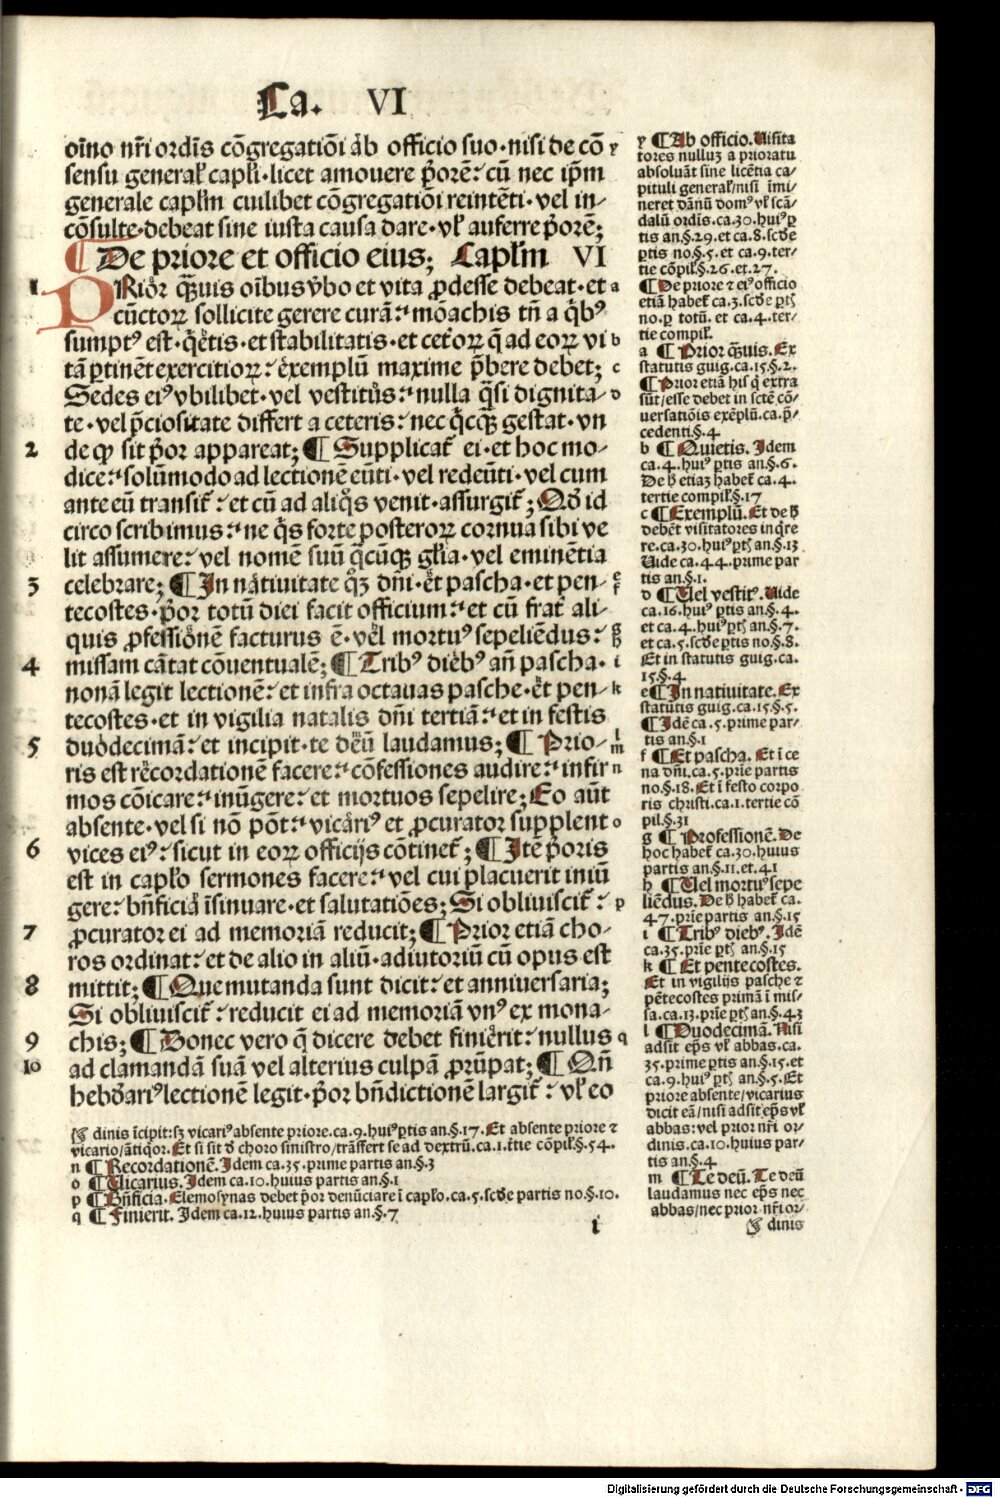 Ca. VI
oı̄no nr̄i ordīs cōgregatiōi ab officio suo·nisi de cō y
sensu general̵ capl̵i·licet amouere p̄orē: cū nec ip̄m
generale capl̵m cuilibet cōgregatiōi reintēti·vel in⸗
cōsulte·debeat sine iusta causa dare·vl̵ auferre p̄orē;
¶ De priore et officio eius; Capl̵m VI
1. PRior q̄uis oībus v̄bo et vita ꝓdesse debeat·et a
cūctoꝝ sollicite gerere curā: mōachis tn̄ a qͥbꝰ
sumptꝰ est·qͥetis·et stabilitatis·et cet̄oꝝ q̄ ad eoꝝ vi b
tā ꝑtinēt exercitioꝝ: exemplū maxime p̄bere debet; c
Sedes eiꝰ vbilibet·vel vestitꝰ: nulla qͣsi dignita⸗ d
te·vel p̄ciositate differt a ceteris: nec qͥcqͣꝫ gestat·vn
2 de ꝙ sit p̄or appareat; ¶ Supplicat̄ ei·et hoc mo⸗
dice: solūmodo ad lectionē eūti·vel redeūti·vel cum
ante eū transit̄: et cū ad aliqͦs venit·assurgit̄; Qd̄ id
circo scribimus: ne qͥs forte posteroꝝ cornua sibi ve
lit assumere: vel nomē suū qͣcūqꝫ gl̵ia·vel eminētia
3 celebrare; ¶ In natiuitate qͦꝫ dn̄i·et pascha·et pen⸗ e f
tecostes·p̄or totū diei facit officium: et cū frat̄ ali⸗
quis ꝓfessiōnē facturus ē·vel mortuꝰ sepeliēdus: g h
4 missam cātat cōuentualē; ¶ Tribꝰ diebꝰ an̄ pascha· i
nonā legit lectionē: et infra octauas pasche·et pen⸗ k
tecostes·et in vigilia natalis dn̄i tertiā: et in festis
5 duodecimā: et incipit·te deū laudamus; ¶ Prio⸗ l m
ris est recordationē facere: cōfessiones audire: infir n
mos cōicare: inūgere: et mortuos sepelire; Eo aūt
absente·vel si nō pōt: vicariꝰ et ꝓcurator supplent o
6 vices eiꝰ: sicut in eoꝝ officijs cōtinet̄; ¶ Itē p̄oris
est in capl̵o sermones facere: vel cui placuerit iniū
gere: bn̄ficia īsinuare·et salutatiōes; Si obliuiscit̄: p
7 ꝓcurator ei ad memoriā reducit; ¶ Prior etiā cho⸗
ros ordinat: et de alio in aliū·adiutoriū cū opus est
8 mittit; ¶ Que mutanda sunt dicit: et anniuersaria;
Si obliuiscit̄: reducit ei ad memoriā vnꝰ ex mona⸗
9 chis; ¶ Donec vero q̄ dicere debet finierit: nullus q
10 ad clamandā suā vel alterius culpā ꝓrūpat; ¶ Qn̄
hebd̄ariꝰ lectionē legit·p̄or bn̄dictionē largit̄: vl̵ eo
dinis īcipit: sꝫ vicariꝰ absente priore.ca.9.huiꝰ ꝑtis an.§.17. Et absente priore ⁊
vicario/ātiqͦr. Et si sit d̄ choro sinistro/trāsfert se ad dextrū.ca.1.t̄tie cōpil̵.§.54.
n ¶ Recordationē. Idem ca.35.prime partis an.§.3
o ¶ Uicarius. Idem ca.10.huius partis an.§.1
p ¶ Bn̄ficia. Elemosynas debet p̄or denūciare ī capl̵o.ca.5.scd̄e partis no.§.10.
q ¶ Finierit. Idem ca.12.huius partis an.§.7
i
y ¶ Ab officio. Uisita
tores nulluꝫ a prioratu
absoluāt sine licētia ca⸗
pituli general̵/nisi īmi⸗
neret dānū domꝰ vl̵ scā⸗
dalū ordīs.ca.30.huiꝰ ꝑ
tis an.§.29.et ca.8.scd̄e
ꝑtis no.§.5.et ca.9.ter⸗
tie cōpil̵.§.26.et.27.
¶ De priore ⁊ eiꝰ officio
etiā habet̄ ca.3.scd̄e ꝑtꝭ
no.ꝑ totū. et ca.4.ter⸗
tie compil̵.
a ¶ Prior q̄uis. Ex
statutis guig.ca.15.§.2.
¶ Prior etiā his q̄ extra
sūt/esse debet in sctē cō⸗
uersatiōis exēplū.ca.p̄⸗
cedenti.§.4
b ¶ Quietis. Idem
ca.4.huiꝰ ꝑtis an.§.6.
De h̄ etiaꝫ habet̄ ca.4.
tertie compil̵.§.17
c ¶ Exemplū. Et de h̄
debēt visitatores inqͥre
re.ca.30.huiꝰ ꝑtꝭ an.§.13
Uide ca.44.prime par
tis an.§.1.
d ¶ Uel vestitꝰ. Uide
ca.16.huiꝰ ꝑtis an.§.4.
et ca.4.huiꝰ ꝑtꝭ an.§.7.
et ca.5.scd̄e ꝑtis no.§.8.
Et in statutis guig.ca.
15.§.4
e ¶ In natiuitate. Ex
statutis guig.ca.15.§.5.
¶ Idē ca.5.prime par⸗
tis an.§.1
f ¶ Et pascha. Et ī ce
na dn̄i.ca.5.pr̄ie partis
no.§.18. Et ī festo corpo
ris christi.ca.1.tertie cō
pil.§.31
g ¶ Professionē. De
hoc habet̄ ca.30.huius
partis an.§.11.et.41
h ¶ Uel mortuꝰ sepe
liēdus. De h̄ habet̄ ca.
47.pr̄ie partis an.§.15
i ¶ Tribꝰ diebꝰ. Idē
ca.35.pr̄ie ꝑtꝭ an.§.15
k ¶ Et pentecostes.
Et in vigilijs pasche ⁊
pētecostes primā ī mis⸗
sa.ca.13.pr̄ie ꝑtꝭ an.§.43
l ¶ Duodecimā. Nisi
adsit ep̄s vl̵ abbas.ca.
35.prime ꝑtis an.§.15.et
ca.9.huiꝰ ꝑtꝭ an.§.5. Et
priore absente/vicarius
dicit eā/nisi adsit ep̄s vl̵
abbas: vel prior nr̄i or⸗
dinis.ca.10.huius par⸗
tis an.§.4
m ¶ Te deū. Te deū
laudamus nec ep̄s nec
abbas/nec prior nr̄i or⸗
dinis
Digitalisierung gefördert durch die Deutsche Forschungsgemeinschaft - DFG